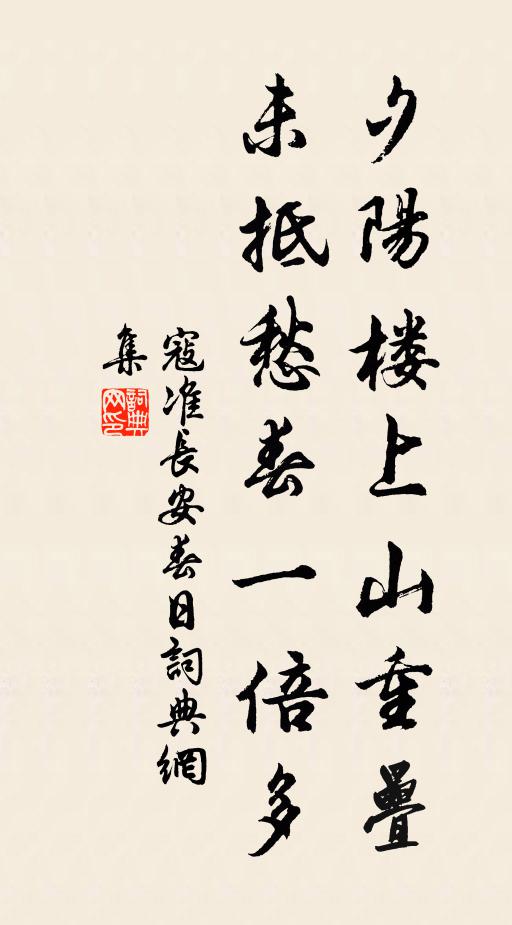 夕陽楼上山重疊
未抵愁春一倍多
寇准長安春日詞典網
集
詞典
网印